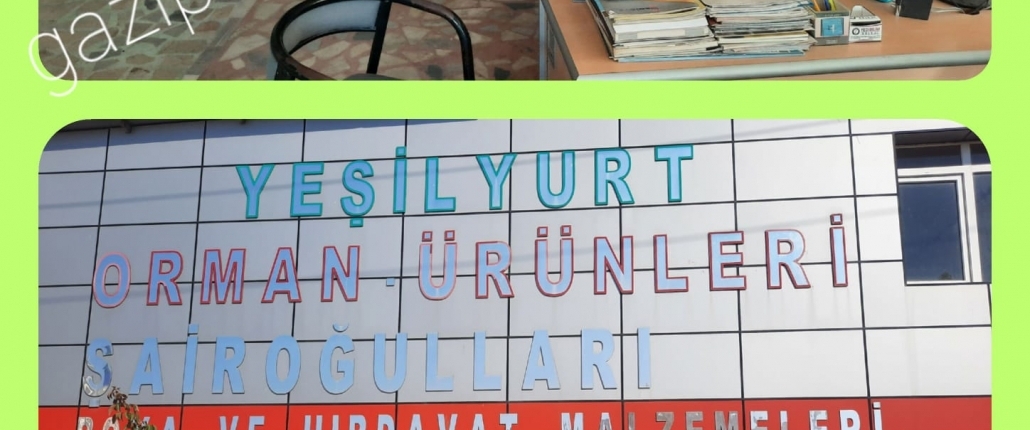 gazip
YEŞİLYURT
ORMAN ÜRÜNLERİ
ŞAİROĞULLARI
BOYA VE HIRDAVAT MALZEMELERİ